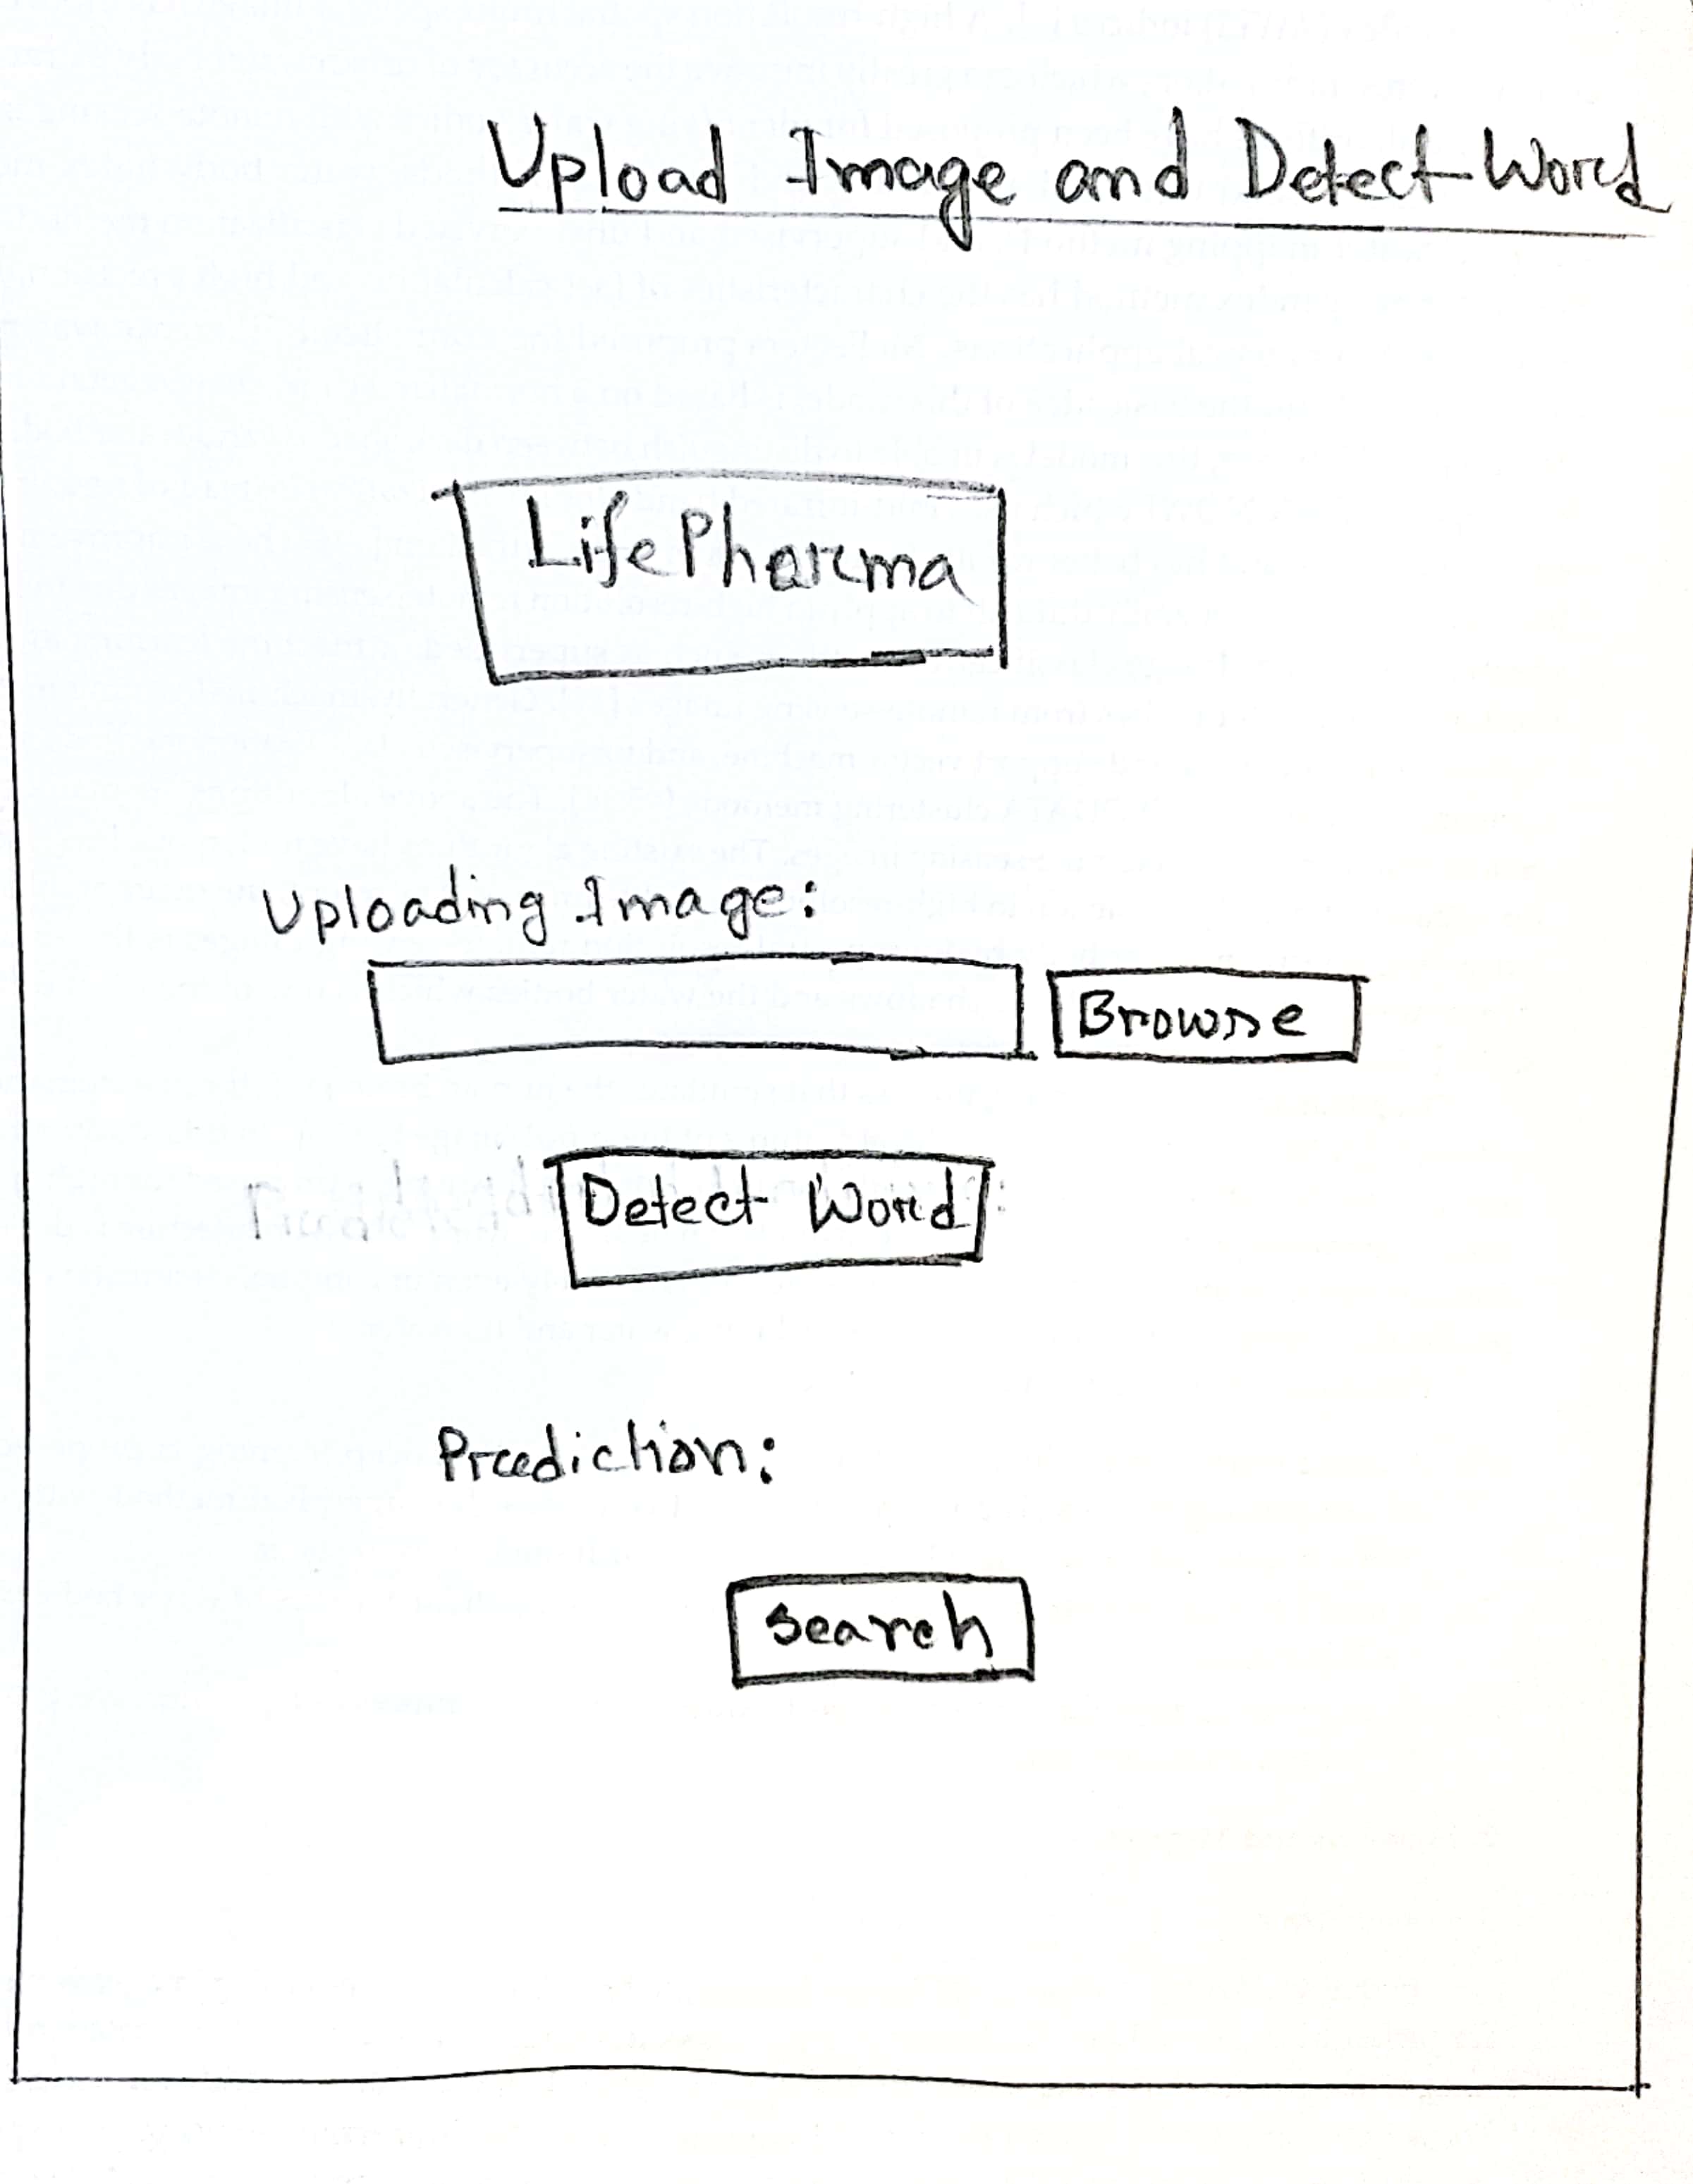 Upload Image and Detect Word
LifePharma
Uploading Image:
Browse
Detect Word
Prediction:
Search